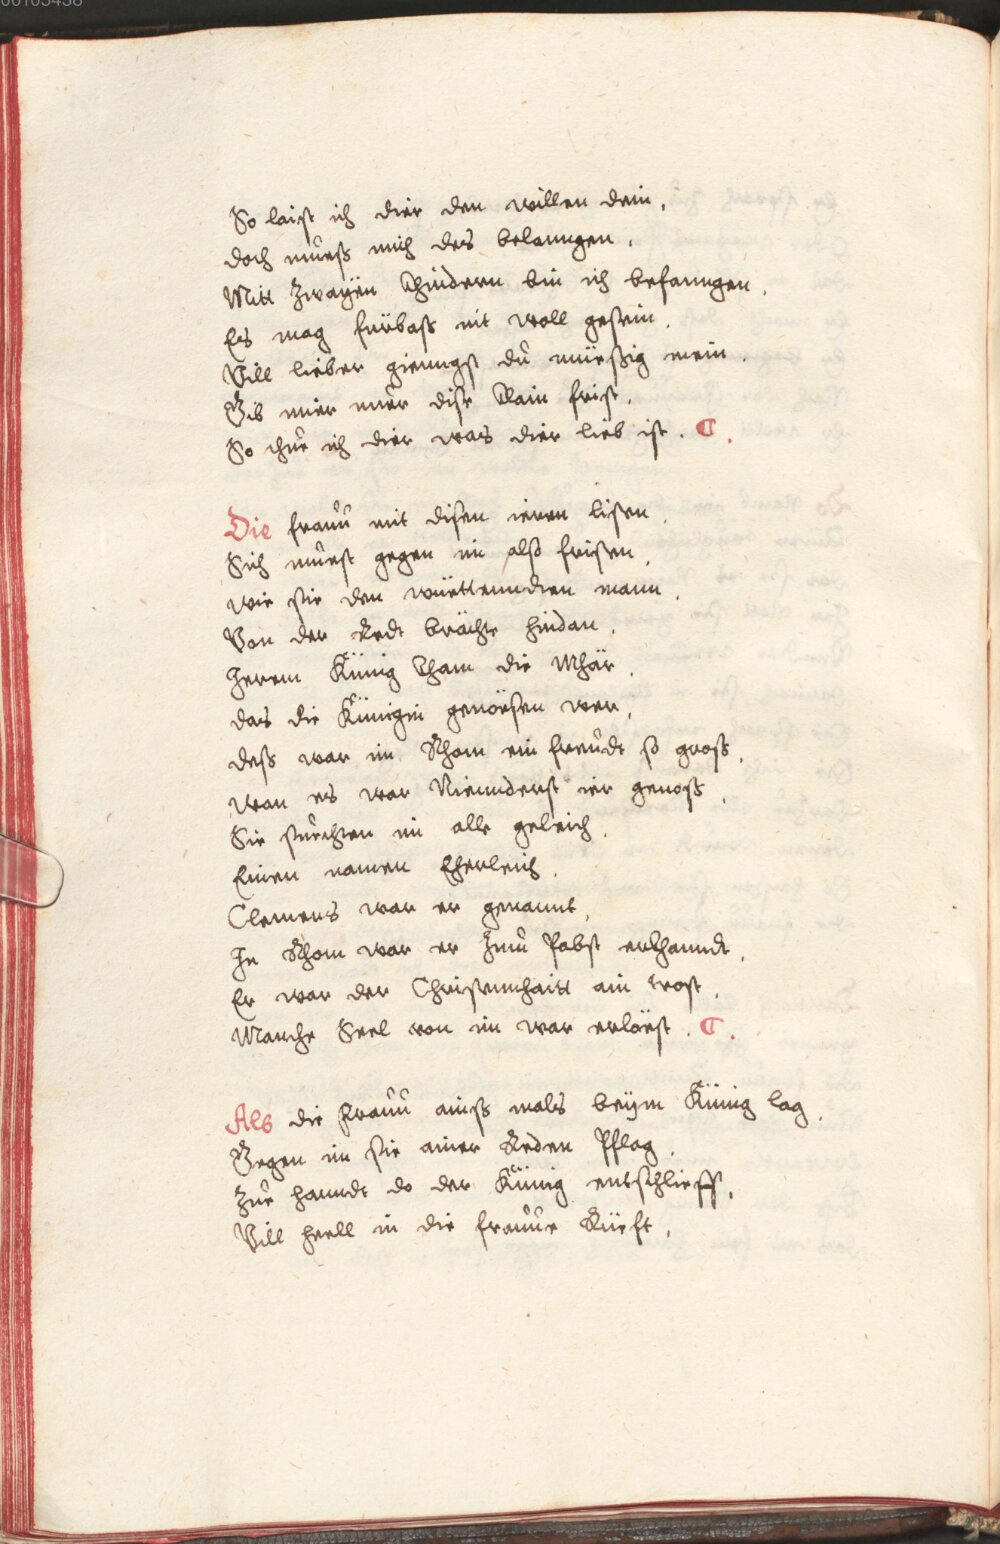 00103438
So laist ich dier den willen dein,
doch muess mich des belanngen,
Mitt zwayen Khindern bin ich befanngen,
Es mag fürbaß nit woll gesein,
Vill lieber gienngst du müessig mein,
Gib mier nuer dise klain frist,
So thue ich dier was dier lieb ist. ¶.
Die frauu mit disen iren listen,
Sich muest gegen im also fristen,
wie sie den wüettenndten mann,
Von der Redt brächte hindan,
Herren Künig Kham die Mhär,
das die Künigin genoesen wer,
dess war im Rhom ein freudt so gross,
wan es war Niennderst ier genoss,
Sie suechten im alle geleich,
Einen namen Eherleich,
Clemens war er genannt,
In Rhom war er zuu Pabst erkhanndt,
Er war der Christennhaitt ain trost,
Manche Seel von im war erlöest. ¶.
Als die frauu ainss mals beym Künig lag,
Gegen im sie ainer Reden Pflag,
Zue hanndt do der Künig entschlieff,
Vill hell in die frauue Rüeft,